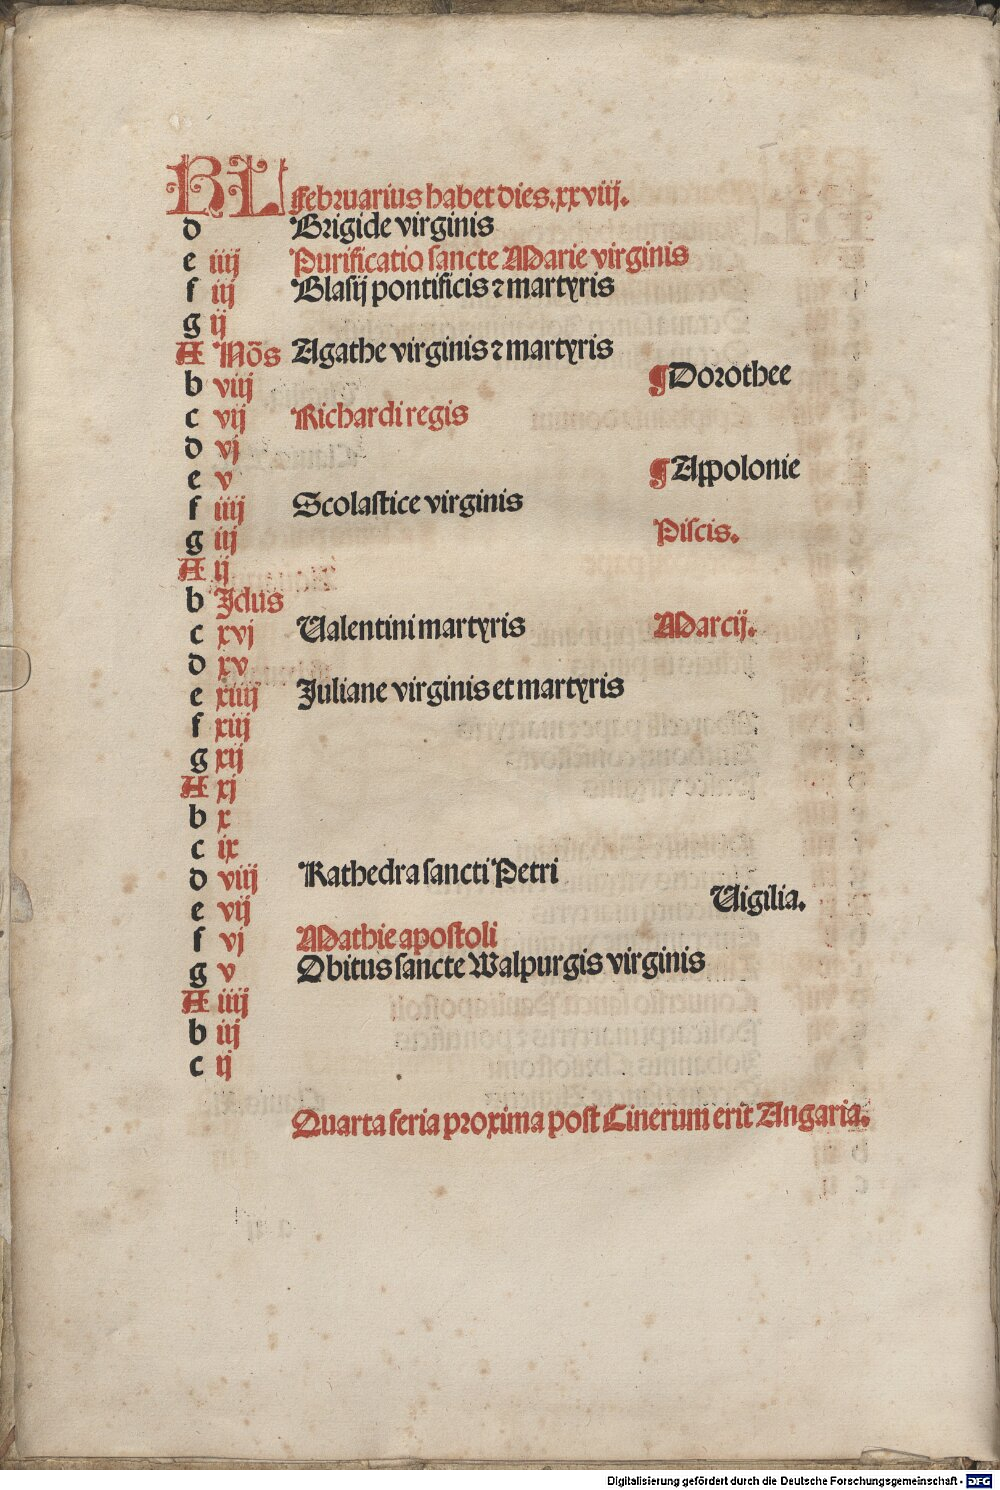 KL Februarius habet dies.xxviij.
d Brigide virginis
e iiij Purificatio sancte Marie virginis
f iij Blasij pontificis ⁊ martyris
g ij
A Nōs Agathe virginis ⁊ martyris
b viij ¶Dorothee
c vij Richardi regis
d vj
e v ¶Appolonie
f iiij Scolastice virginis
g iij Piscis.
A ij
b Jdus
c xvj Ualentini martyris Marcij.
d xv
e xiiij Juliane virginis et martyris
f xiij
g xij
A xj
b x
c ix
d viij Kathedra sancti Petri
e vij Uigilia.
f vj Mathie apostoli
g v Obitus sancte Walpurgis virginis
A iiij
b iij
c ij
Quarta feria proxima post Cinerum erit Angaria.
Digitalisierung gefördert durch die Deutsche Forschungsgemeinschaft - DFG